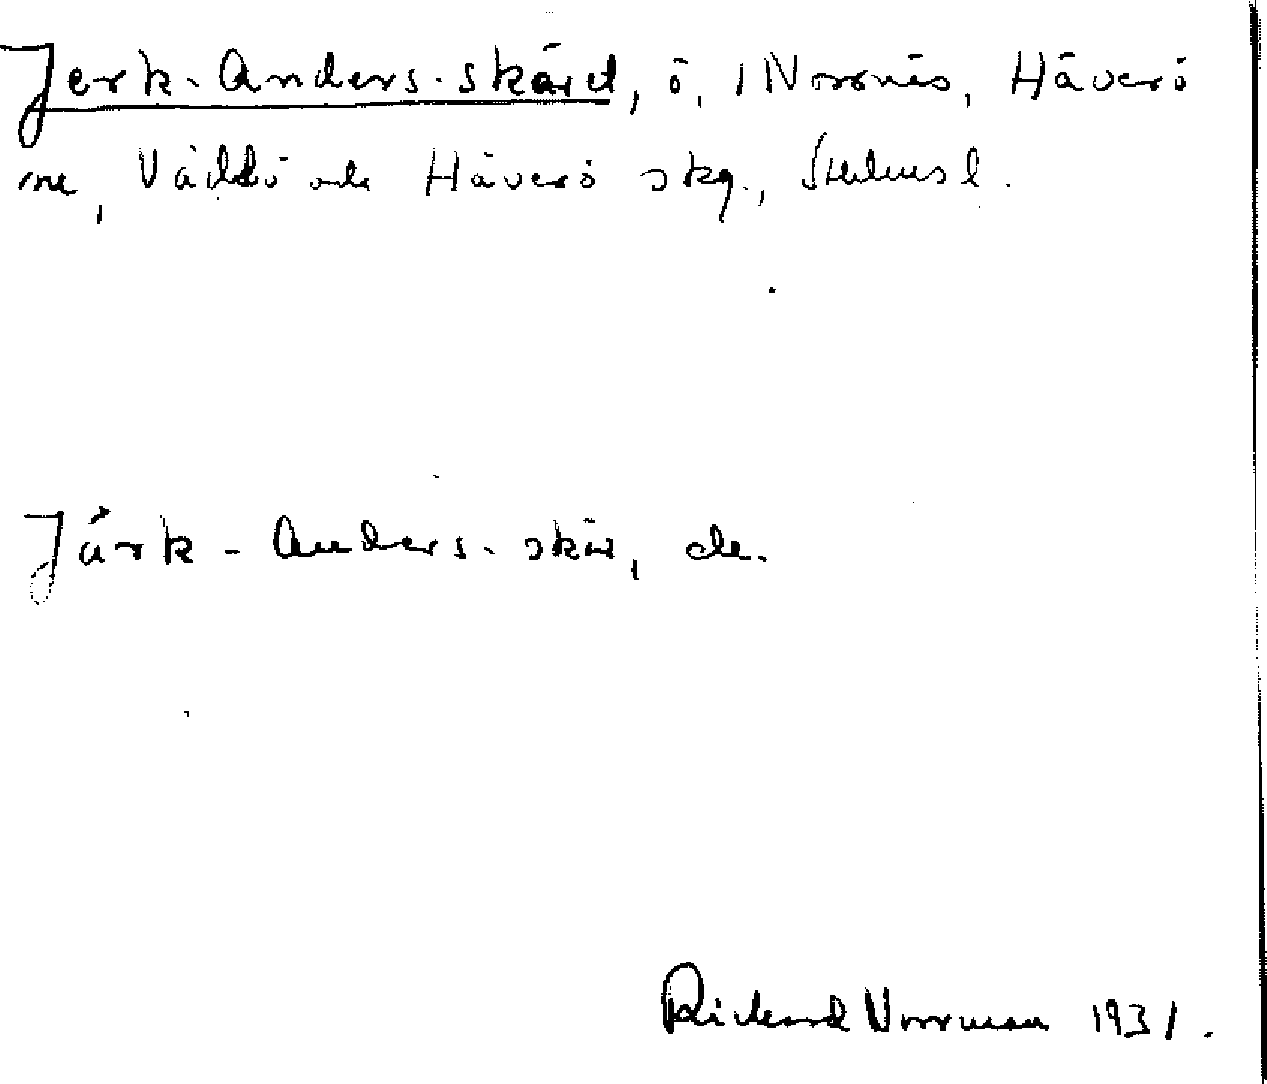 Jerk-Anders-skäret, ö, i Norrnäs, Häverö
sn, Väddö och Häverö skg., Sthlms l.
Järk-Anders-skär, de.
Richard Norrman 1931.